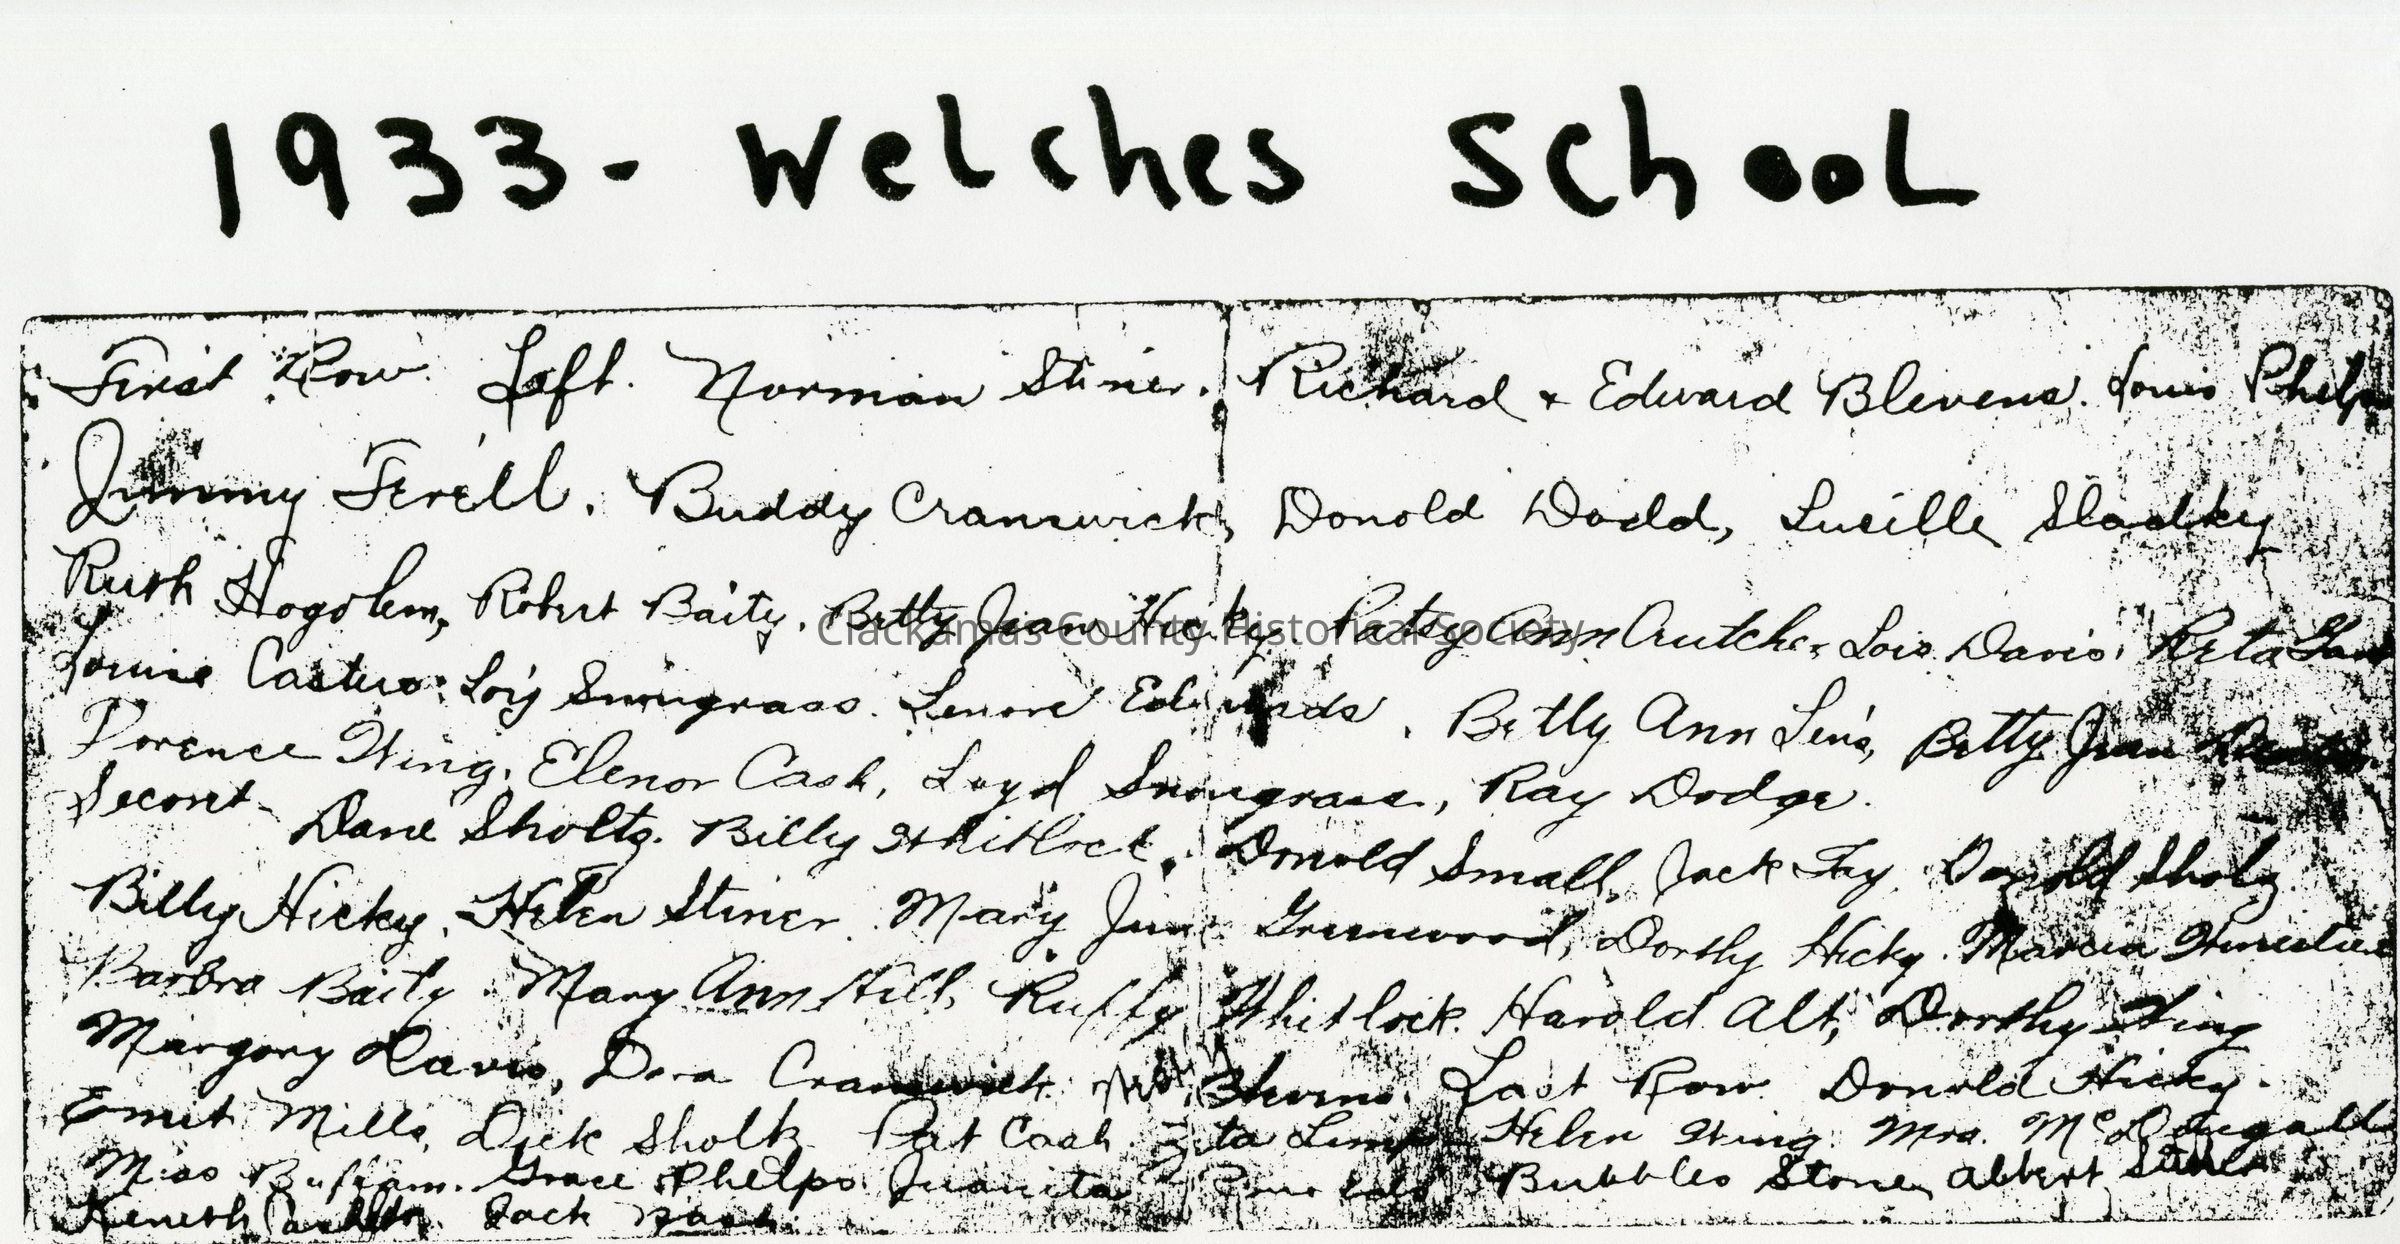 1933- Welches School
First Row. Left. Norman Stiner. Richard + Edward Blevens. Louis Phelps
Jimmy Ferell. Buddy Cranswick, Donold Dodd, Lucille Sladky
Ruth Hogolem, Robert Baity. Betty Jean Hicky. Patsy Ann Crutcher Lois Davis. Reta
Clackamas County Historical Society
Louise Castero. Loij Snwgrass. Lenore Edwards. Betty Ann Lens, Betty Jean
Dorence Wing, Elenor Cash, Loyd Snwgrass, Ray Dodge.
Secont- Dane Sholtz. Billy Whitlock. Donold Small, Jack Fry. Donold Sholz
Billy Hicky, Helen Stiner. Mary June Greenwood, Dorthy Hicky. Marcia
Barbra Baity. Mary Ann Hill, Ruffy Whitlock. Harold Alt, Dorthy Wing
Margory Davis, Dora Cranswick Blevens. Last Row. Donold Hicky.
Emet Mills, Dick Sholtz Pat Cash. Helen Wing. Mrs. McDougall
Miss Buffam. Grace Phelps Juanita Bubbles Stone, Albert Stiner
Keneth Jack